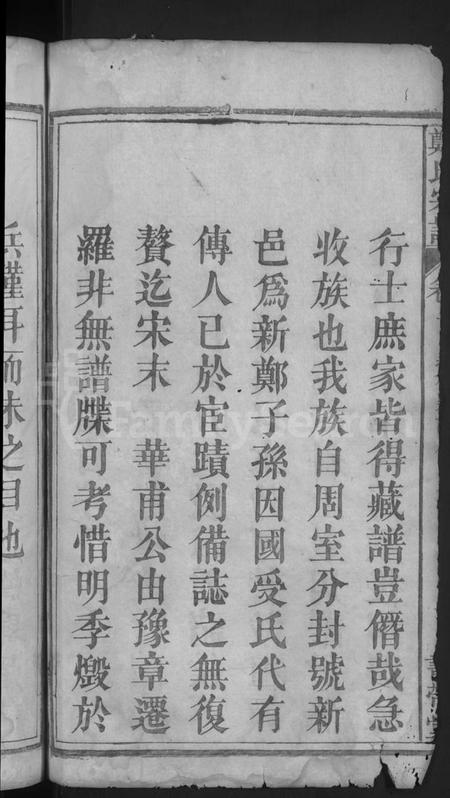 鄭氏宗譜
行士庶家皆得藏譜豈僭哉急
收族也我族自周室分封號新
邑爲新鄭子孫因國受氏代有
傳人已於宦蹟例備誌之無復
贅迄宋末　華甫公由豫章遷
羅非無譜牒可考惜明季燬於
兵僅耳
之目也
FamilySearch